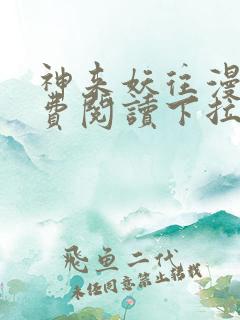 神来妖往漫
费閱讀下拉
飛魚二代
未经同意禁止转载